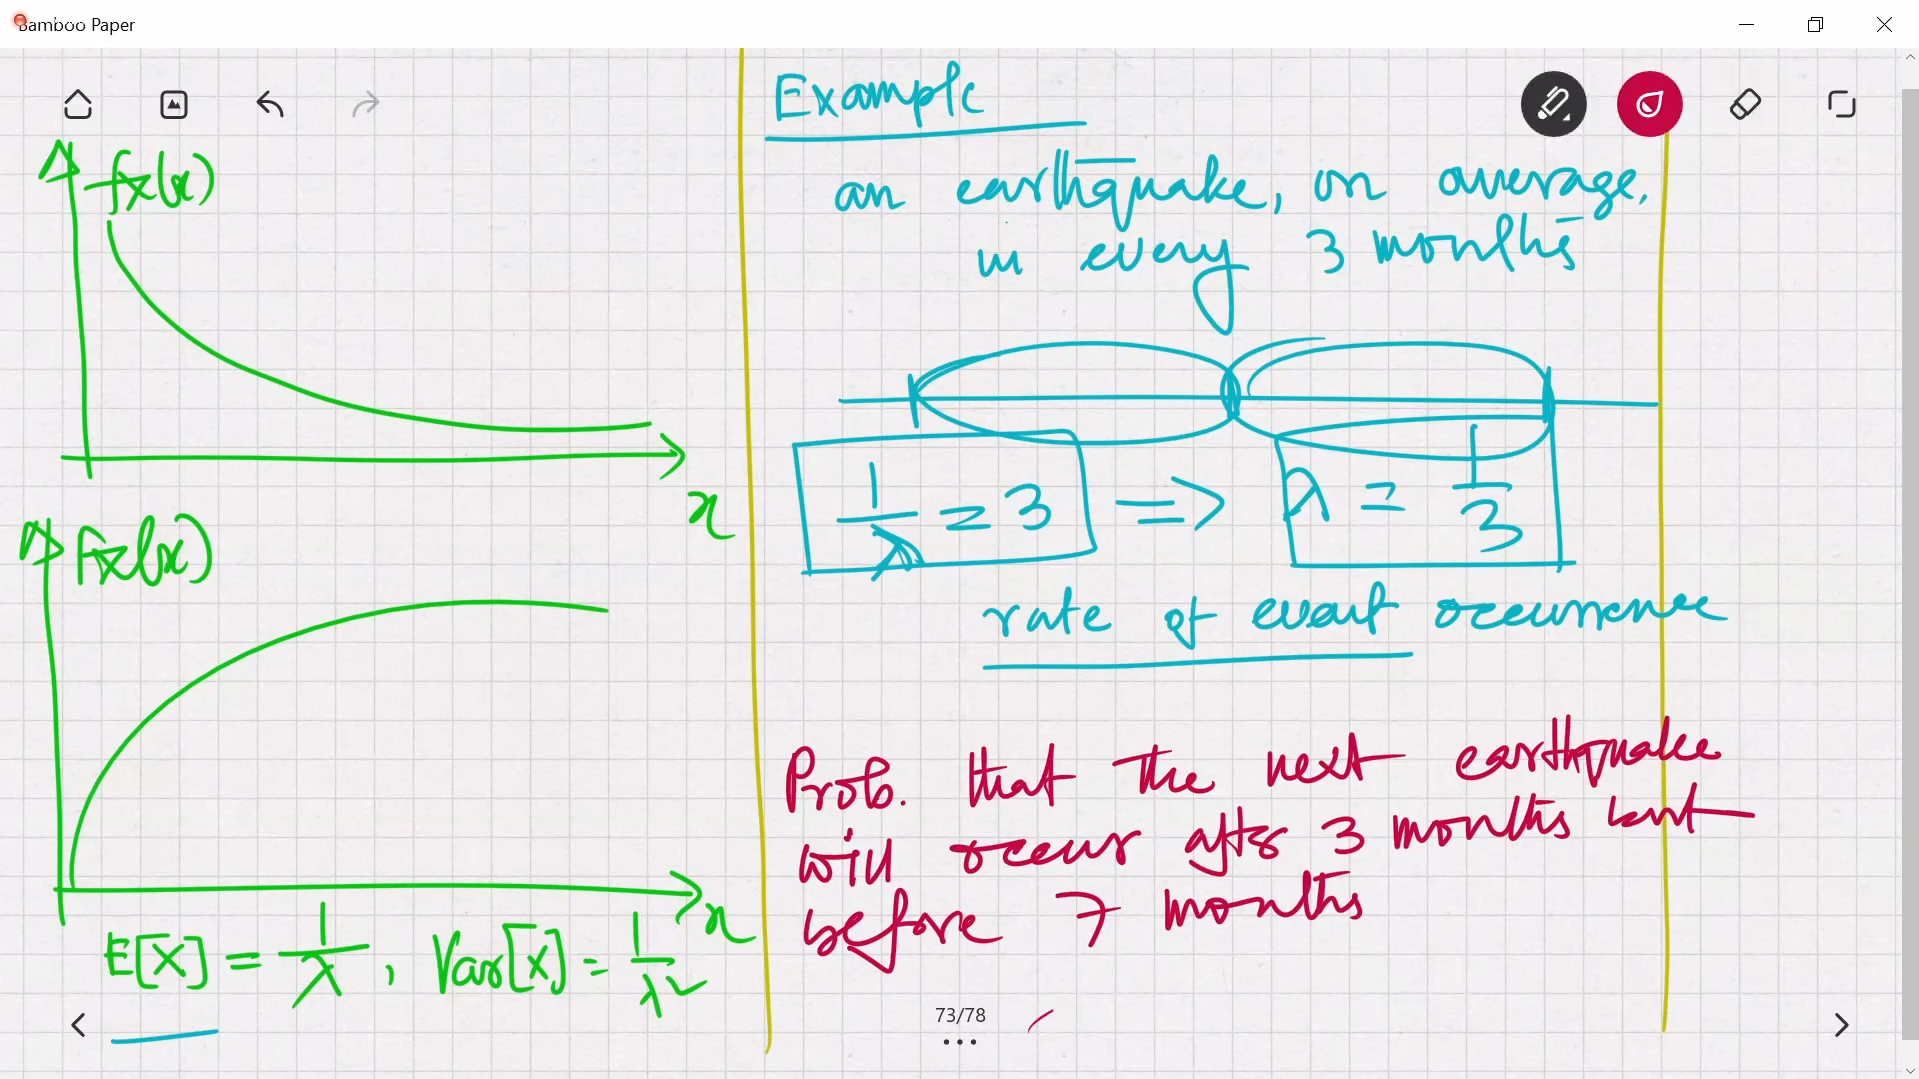 Bamboo Paper
fx(x)
x
Fx(x)
x
E[X] = 1/λ, Var[X] = 1/λ²
Example
an earthquake, on average,
in every 3 months
1/λ = 3 => λ = 1/3
rate of event occurrence
Prob. that the next earthquake
will occur after 3 months but
before 7 months
73/78